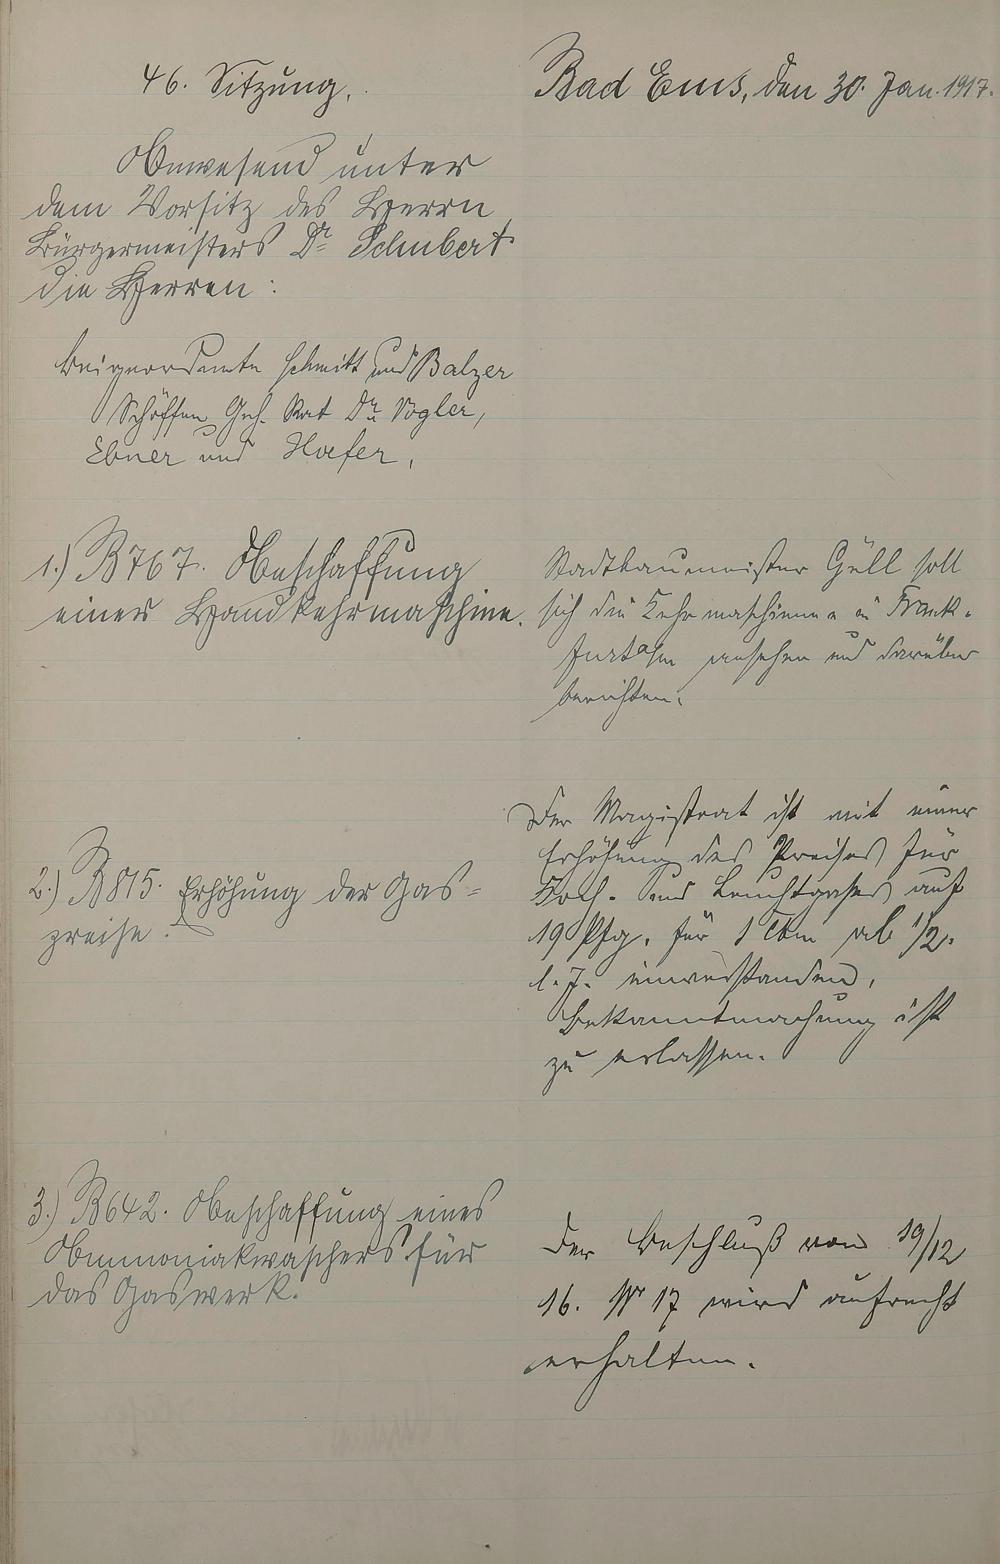 46. Sitzung.
Bad Ems, den 30. Jan. 1917.
Anwesend unter
dem Vorsitz des Herrn
Bürgermeisters Dr Schubert
die Herren:
Beigeordnete Schmitt und Balzer
Schöffen Geh. Rat Dr. Vogler,
Ebner und Hoefer.
1.) B767. Beschaffung
einer Handkehrmaschine.
Stadtbaumeister Güll soll
sich die Kehrmaschinen in Frank-
furt a/m ansehen und darüber
berichten.
2.) B815. Erhöhung der Gas-
preise.
Der Magistrat ist mit einer
Erhöhung des Preises für
Koch- und Leuchtgases auf
19 Pfg. für 1 Cbm ab 1/2.
l. J. einverstanden.
Bekanntmachung ist
zu erlassen.
3.) B642. Beschaffung eines
Ammoniakwaschers für
das Gaswerk.
Der Beschluß vom 19/12
16. Nr 17 wird aufrecht
erhalten.